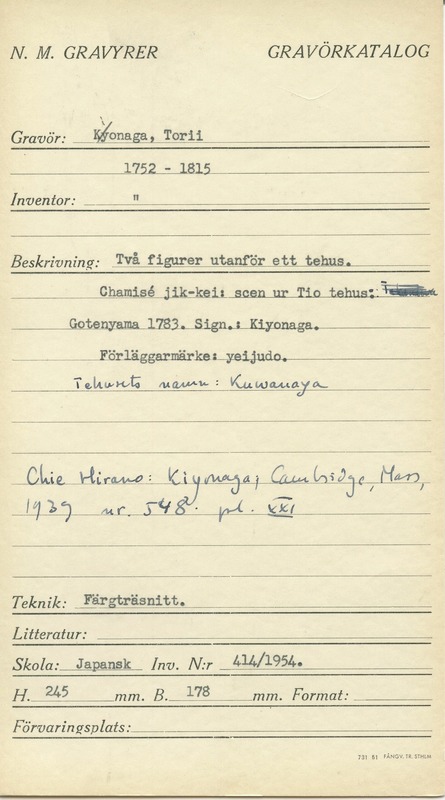 N. M. GRAVYRER GRAVÖRKATALOG
Gravör: Kiyonaga, Torii
1752 - 1815
Inventor: "
Beskrivning: Två figurer utanför ett tehus.
Chamisé jik-kei: scen ur Tio tehus:
Gotenyama 1783. Sign.: Kiyonaga.
Förläggarmärke: yeijudo.
Tehusets namn: Kuwanaya
Chie Hirano: Kiyonaga; Cambridge, Mass,
1939 nr. 548. pl. XXI
Teknik: Färgträsnitt.
Litteratur:
Skola: Japansk Inv. N:r 414/1954.
H. 245 mm. B. 178 mm. Format:
Förvaringsplats:
731 51 FÅNGV. TR. STHLM